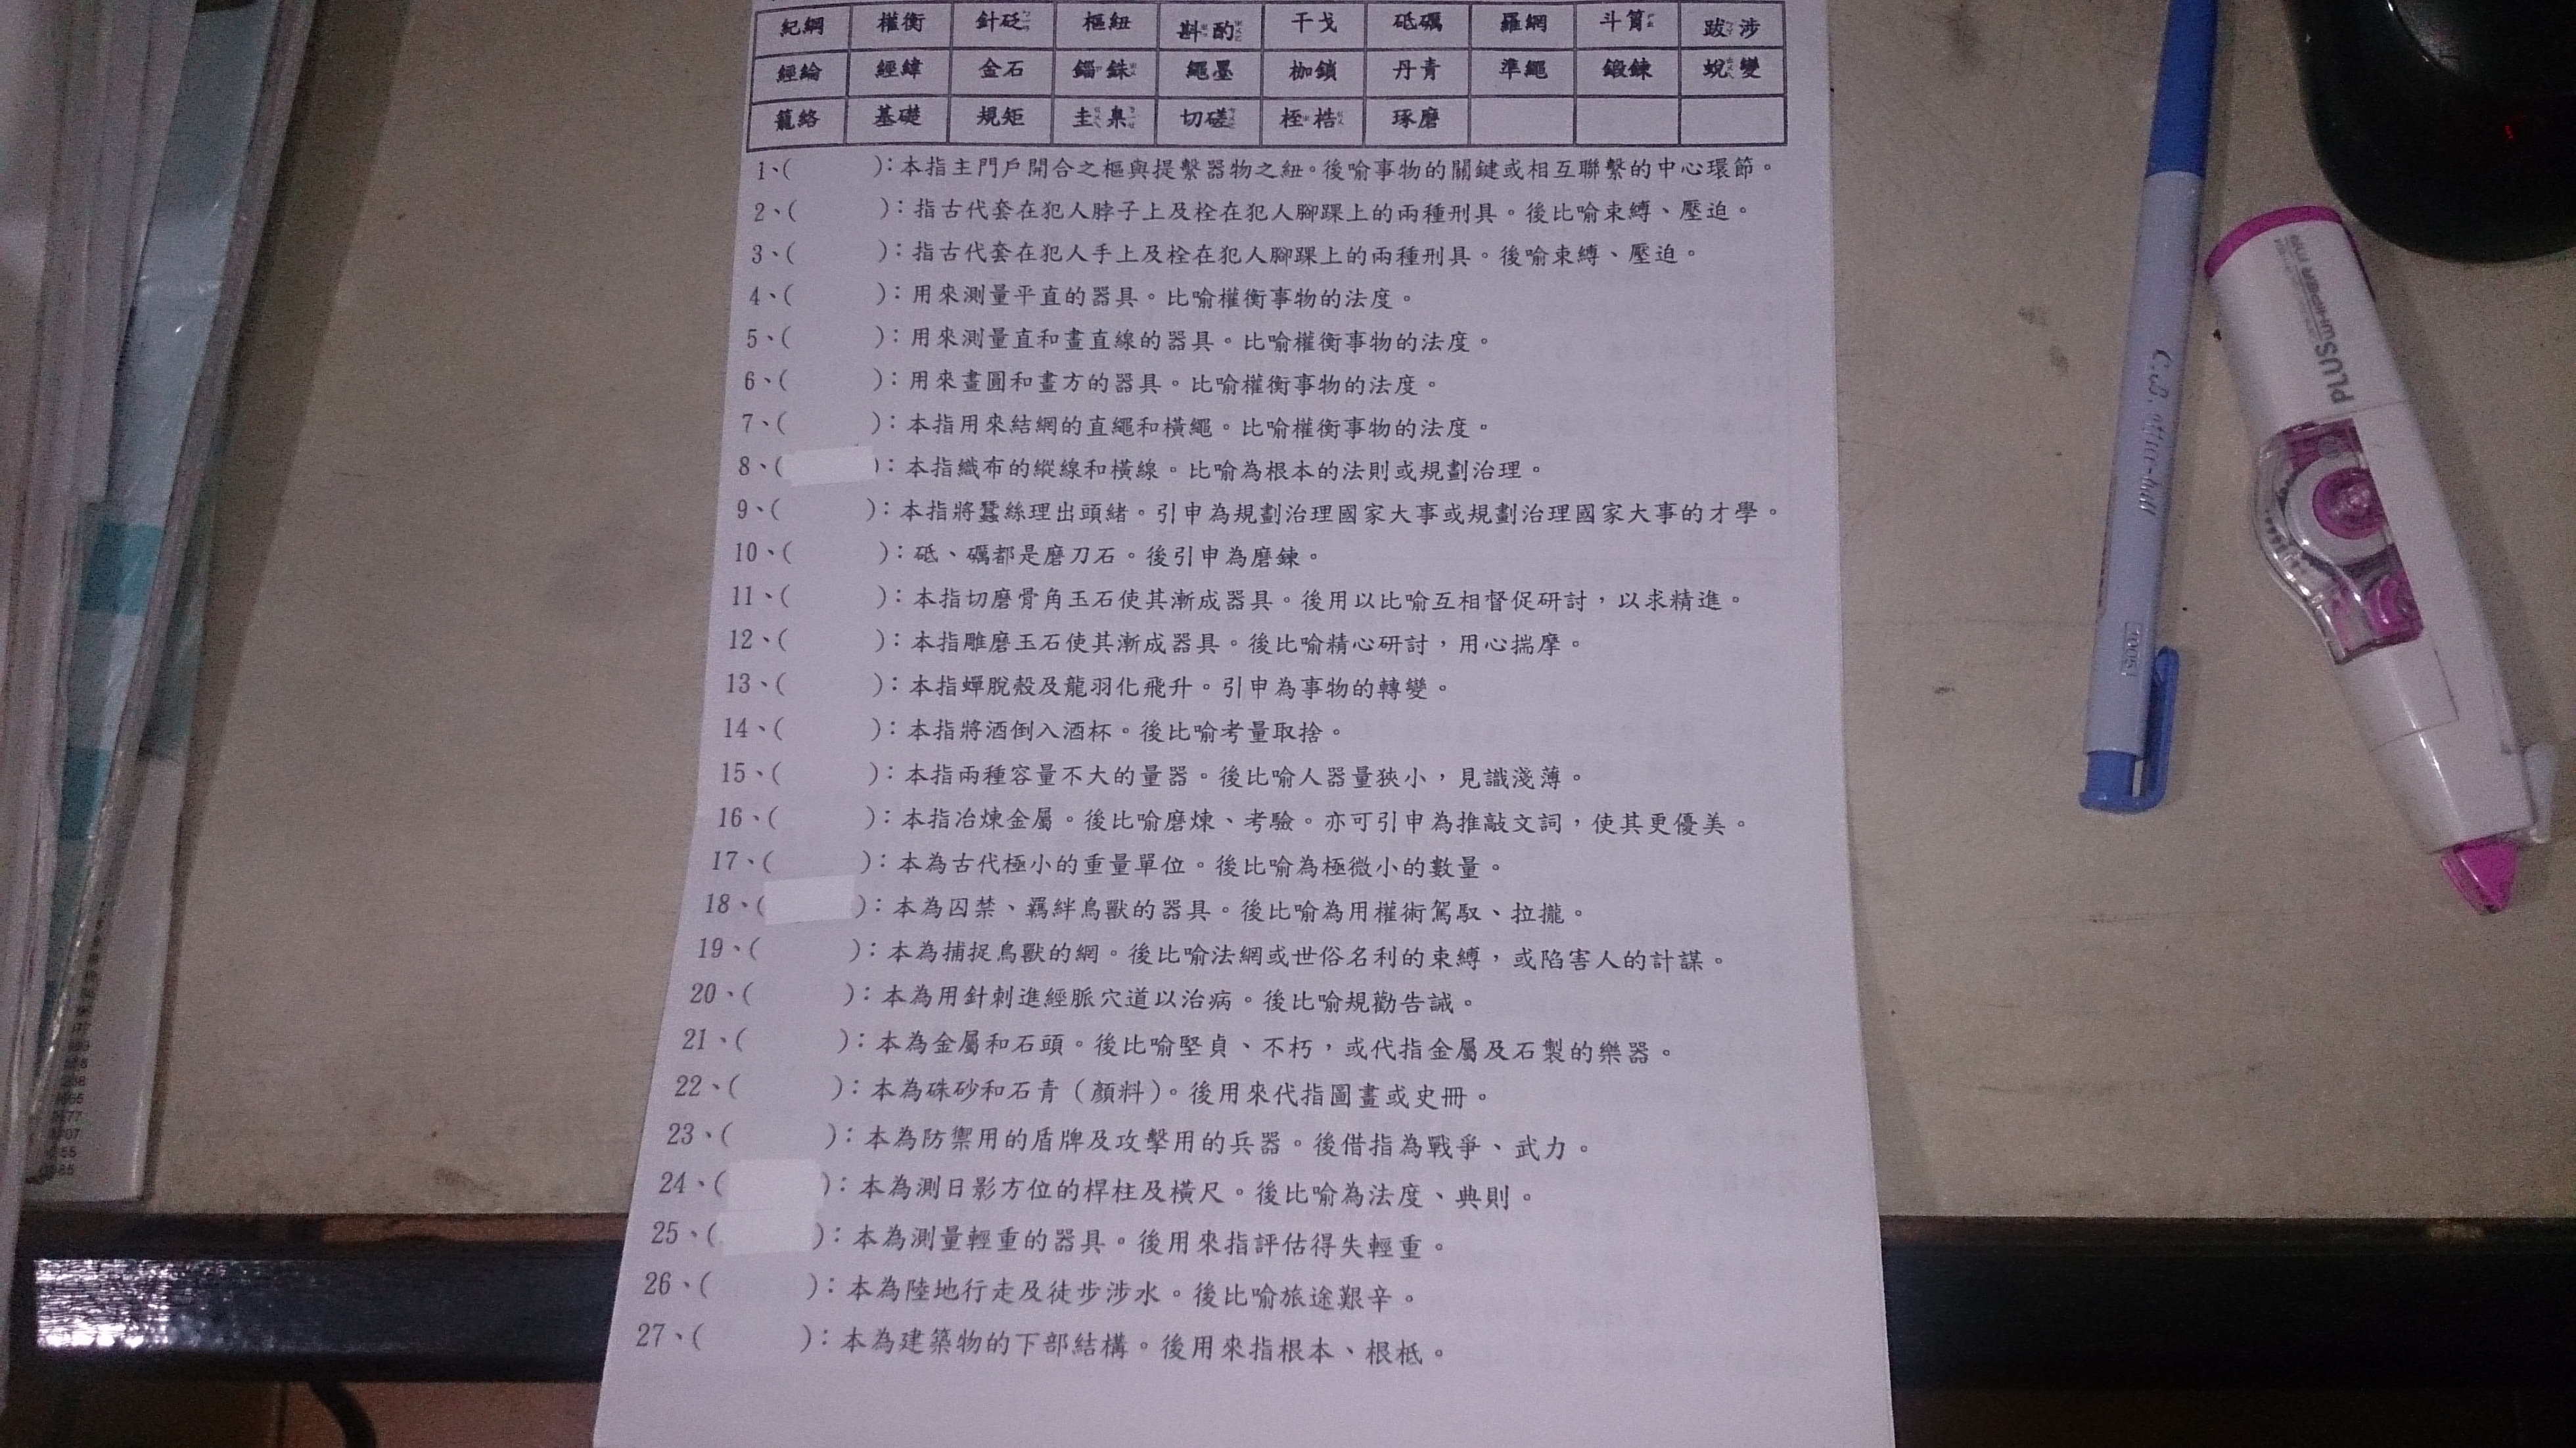 紀綱 權衡 針砭 樞紐 斟酌 干戈 砥礪 羅網 斗筲 跋涉
經綸 經緯 金石 錙銖 繩墨 枷鎖 丹青 準繩 鍛鍊 蛻變
籠絡 基礎 規矩 圭臬 切磋 桎梏 琢磨
1、( ):本指主門戶開合之樞與提繫器物之紐。後喻事物的關鍵或相互聯繫的中心環節。
2、( ):指古代套在犯人脖子上及栓在犯人腳踝上的兩種刑具。後比喻束縛、壓迫。
3、( ):指古代套在犯人手上及栓在犯人腳踝上的兩種刑具。後喻束縛、壓迫。
4、( ):用來測量平直的器具。比喻權衡事物的法度。
5、( ):用來測量直和畫直線的器具。比喻權衡事物的法度。
6、( ):用來畫圓和畫方的器具。比喻權衡事物的法度。
7、( ):本指用來結網的直繩和橫繩。比喻權衡事物的法度。
8、( ):本指織布的縱線和橫線。比喻為根本的法則或規劃治理。
9、( ):本指將蠶絲理出頭緒。引申為規劃治理國家大事或規劃治理國家大事的才學。
10、( ):砥、礪都是磨刀石。後引申為磨鍊。
11、( ):本指切磨骨角玉石使其漸成器具。後用以比喻互相督促研討,以求精進。
12、( ):本指雕磨玉石使其漸成器具。後比喻精心研討,用心揣摩。
13、( ):本指蟬脫殼及龍羽化飛升。引申為事物的轉變。
14、( ):本指將酒倒入酒杯。後比喻考量取捨。
15、( ):本指兩種容量不大的量器。後比喻人器量狹小,見識淺薄。
16、( ):本指冶煉金屬。後比喻磨煉、考驗。亦可引申為推敲文詞,使其更優美。
17、( ):本為古代極小的重量單位。後比喻為極微小的數量。
18、( ):本為囚禁、羈絆鳥獸的器具。後比喻為用權術駕馭、拉攏。
19、( ):本為捕捉鳥獸的網。後比喻法網或世俗名利的束縛,或陷害人的計謀。
20、( ):本為用針刺進經脈穴道以治病。後比喻規勸告誡。
21、( ):本為金屬和石頭。後比喻堅貞、不朽,或代指金屬及石製的樂器。
22、( ):本為硃砂和石青(顏料)。後用來代指圖畫或史冊。
23、( ):本為防禦用的盾牌及攻擊用的兵器。後借指為戰爭、武力。
24、( ):本為測日影方位的桿柱及橫尺。後比喻為法度、典則。
25、( ):本為測量輕重的器具。後用來指評估得失輕重。
26、( ):本為陸地行走及徒步涉水。後比喻旅途艱辛。
27、( ):本為建築物的下部結構。後用來指根本、根柢。
PLUS
WHIPER